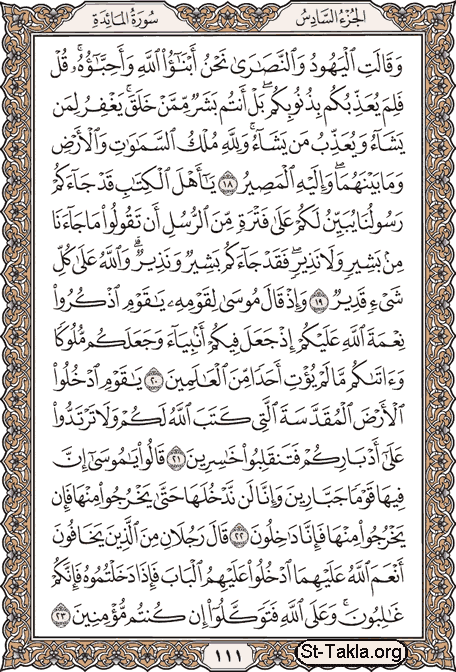 الجزء السادس
سورة المائدة
وَقَالَتِ الْيَهُودُ وَالنَّصَارَىٰ نَحْنُ أَبْنَاؤُا اللَّهِ وَأَحِبَّاؤُهُ ۚ قُلْ
فَلِمَ يُعَذِّبُكُم بِذُنُوبِكُم ۖ بَلْ أَنتُم بَشَرٌ مِّمَّنْ خَلَقَ ۚ يَغْفِرُ لِمَن
يَشَاءُ وَيُعَذِّبُ مَن يَشَاءُ ۚ وَلِلَّهِ مُلْكُ السَّمَاوَاتِ وَالْأَرْضِ
وَمَا بَيْنَهُمَا ۖ وَإِلَيْهِ الْمَصِيرُ ١٨ يَا أَهْلَ الْكِتَابِ قَدْ جَاءَكُمْ
رَسُولُنَا يُبَيِّنُ لَكُمْ عَلَىٰ فَتْرَةٍ مِّنَ الرُّسُلِ أَن تَقُولُوا مَا جَاءَنَا
مِن بَشِيرٍ وَلَا نَذِيرٍ ۖ فَقَدْ جَاءَكُم بَشِيرٌ وَنَذِيرٌ ۗ وَاللَّهُ عَلَىٰ كُلِّ
شَيْءٍ قَدِيرٌ ١٩ وَإِذْ قَالَ مُوسَىٰ لِقَوْمِهِ يَا قَوْمِ اذْكُرُوا
نِعْمَةَ اللَّهِ عَلَيْكُمْ إِذْ جَعَلَ فِيكُمْ أَنبِيَاءَ وَجَعَلَكُم مُّلُوكًا
وَآتَاكُم مَّا لَمْ يُؤْتِ أَحَدًا مِّنَ الْعَالَمِينَ ٢٠ يَا قَوْمِ ادْخُلُوا
الْأَرْضَ الْمُقَدَّسَةَ الَّتِي كَتَبَ اللَّهُ لَكُمْ وَلَا تَرْتَدُّوا
عَلَىٰ أَدْبَارِكُمْ فَتَنقَلِبُوا خَاسِرِينَ ٢١ قَالُوا يَا مُوسَىٰ إِنَّ
فِيهَا قَوْمًا جَبَّارِينَ وَإِنَّا لَن نَّدْخُلَهَا حَتَّىٰ يَخْرُجُوا مِنْهَا فَإِن
يَخْرُجُوا مِنْهَا فَإِنَّا دَاخِلُونَ ٢٢ قَالَ رَجُلَانِ مِنَ الَّذِينَ يَخَافُونَ
أَنْعَمَ اللَّهُ عَلَيْهِمَا ادْخُلُوا عَلَيْهِمُ الْبَابَ فَإِذَا دَخَلْتُمُوهُ فَإِنَّكُمْ
غَالِبُونَ ۚ وَعَلَى اللَّهِ فَتَوَكَّلُوا إِن كُنتُم مُّؤْمِنِينَ ٢٣
١١١
St-Takla.org